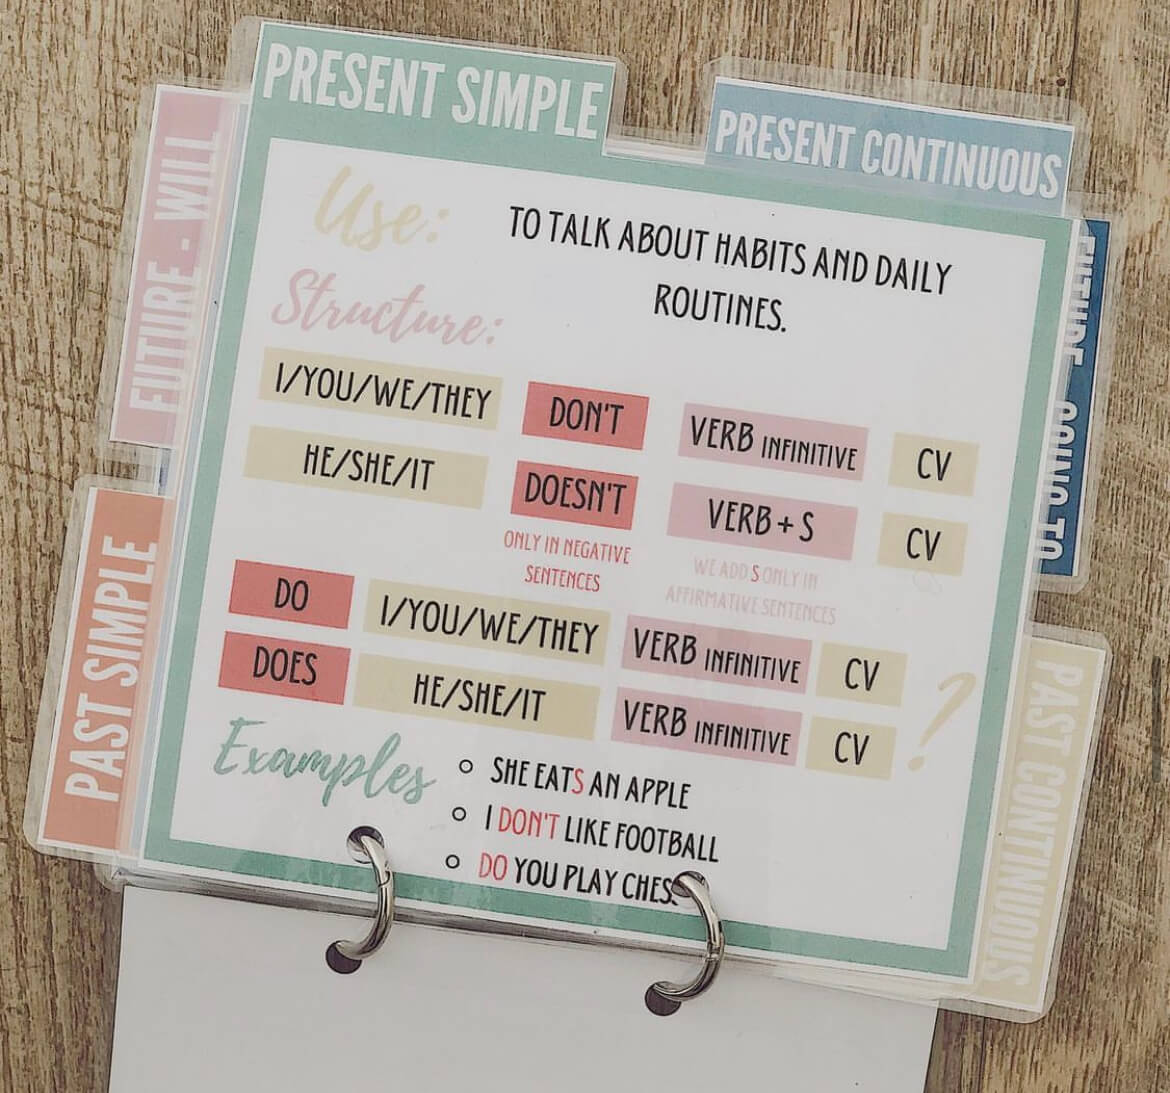 PRESENT SIMPLE
PRESENT CONTINUOUS
FUTURE - WILL
FUTURE - GOING TO
PAST SIMPLE
PAST CONTINUOUS
Use:
TO TALK ABOUT HABITS AND DAILY
ROUTINES.
Structure:
I/YOU/WE/THEY DON'T VERB INFINITIVE CV
HE/SHE/IT DOESN'T VERB + S CV
ONLY IN NEGATIVE
SENTENCES
WE ADD S ONLY IN
AFFIRMATIVE SENTENCES
DO I/YOU/WE/THEY VERB INFINITIVE CV
DOES HE/SHE/IT VERB INFINITIVE CV
?
Examples
SHE EATS AN APPLE
I DON'T LIKE FOOTBALL
DO YOU PLAY CHES